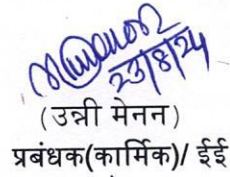 23/8/24
(उन्नी मेनन)
प्रबंधक(कार्मिक)/ ईई